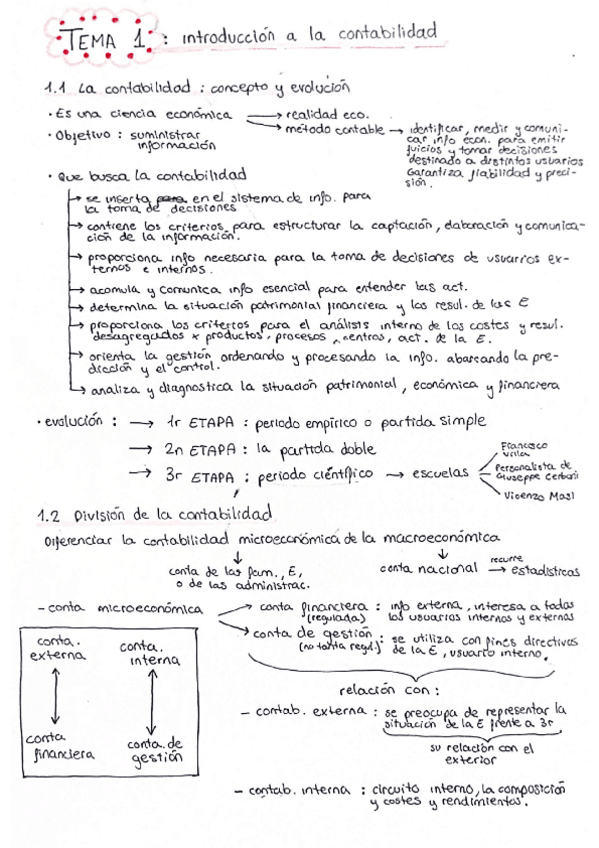 TEMA 1 : introducción a la contabilidad
1.1 La contabilidad : concepto y evolución
· Es una ciencia económica → realidad eco.
→ método contable → identificar, medir y comuni-
car info econ. para emitir
juicios y tomar decisiones
destinado a distintos usuarios
Garantiza fiabilidad y preci-
sión.
· Objetivo : suministrar
información
· Que busca la contabilidad
→ se inserta en el sistema de info. para
la toma de decisiones
→ contiene los criterios para estructurar la captación, elaboración y comunica-
ción de la información.
→ proporciona info necesaria para la toma de decisiones de usuarios ex-
ternos e internos.
→ acomula y comunica info esencial para entender las act.
→ determina la situación patrimonial financiera y los resul. de las E
→ proporciona los criterios para el análisis interno de los costes y resul.
desagregados x productos, procesos, centros, act. de la E.
→ orienta la gestión ordenando y procesando la info. abarcando la pre-
dicción y el control.
→ analiza y diagnostica la situación patrimonial, económica y financiera
· evolución : → 1r ETAPA : periodo empírico o partida simple
→ 2n ETAPA : la partida doble
→ 3r ETAPA : periodo científico → escuelas
Francesco
Villa
Personalista de
Giuseppe Cerboni
Vicenzo Masi
1.2 División de la contabilidad
Diferenciar la contabilidad microeconómica de la macroeconómica
conta de las fam., E,
o de las administrac.
conta nacional → recurre estadísticas
- conta microeconómica
→ conta financiera : info externa, interesa a todos
(regulada) los usuarios internos y externos
→ conta de gestión : se utiliza con fines directivos
(no tanta regul.) de la E, usuario interno.
conta.
externa
conta.
interna
conta
financiera
conta. de
gestión
relación con :
- contab. externa : se preocupa de representar la
situación de la E frente a 3r
su relación con el
exterior
- contab. interna : circuito interno, la composición
y costes y rendimientos.